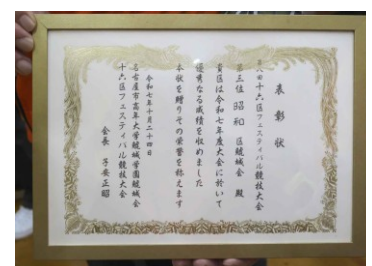 表彰状
十六区フェスティバル競技大会
第三位 昭和区鯱城会 殿
貴区は令和七年度大会に於いて
優秀なる成績を収めました
本状を贈りその栄誉を称えます
令和七年十月二十四日
名古屋市高年大学鯱城学園鯱城会
十六区フェスティバル競技大会
会長 子安正昭